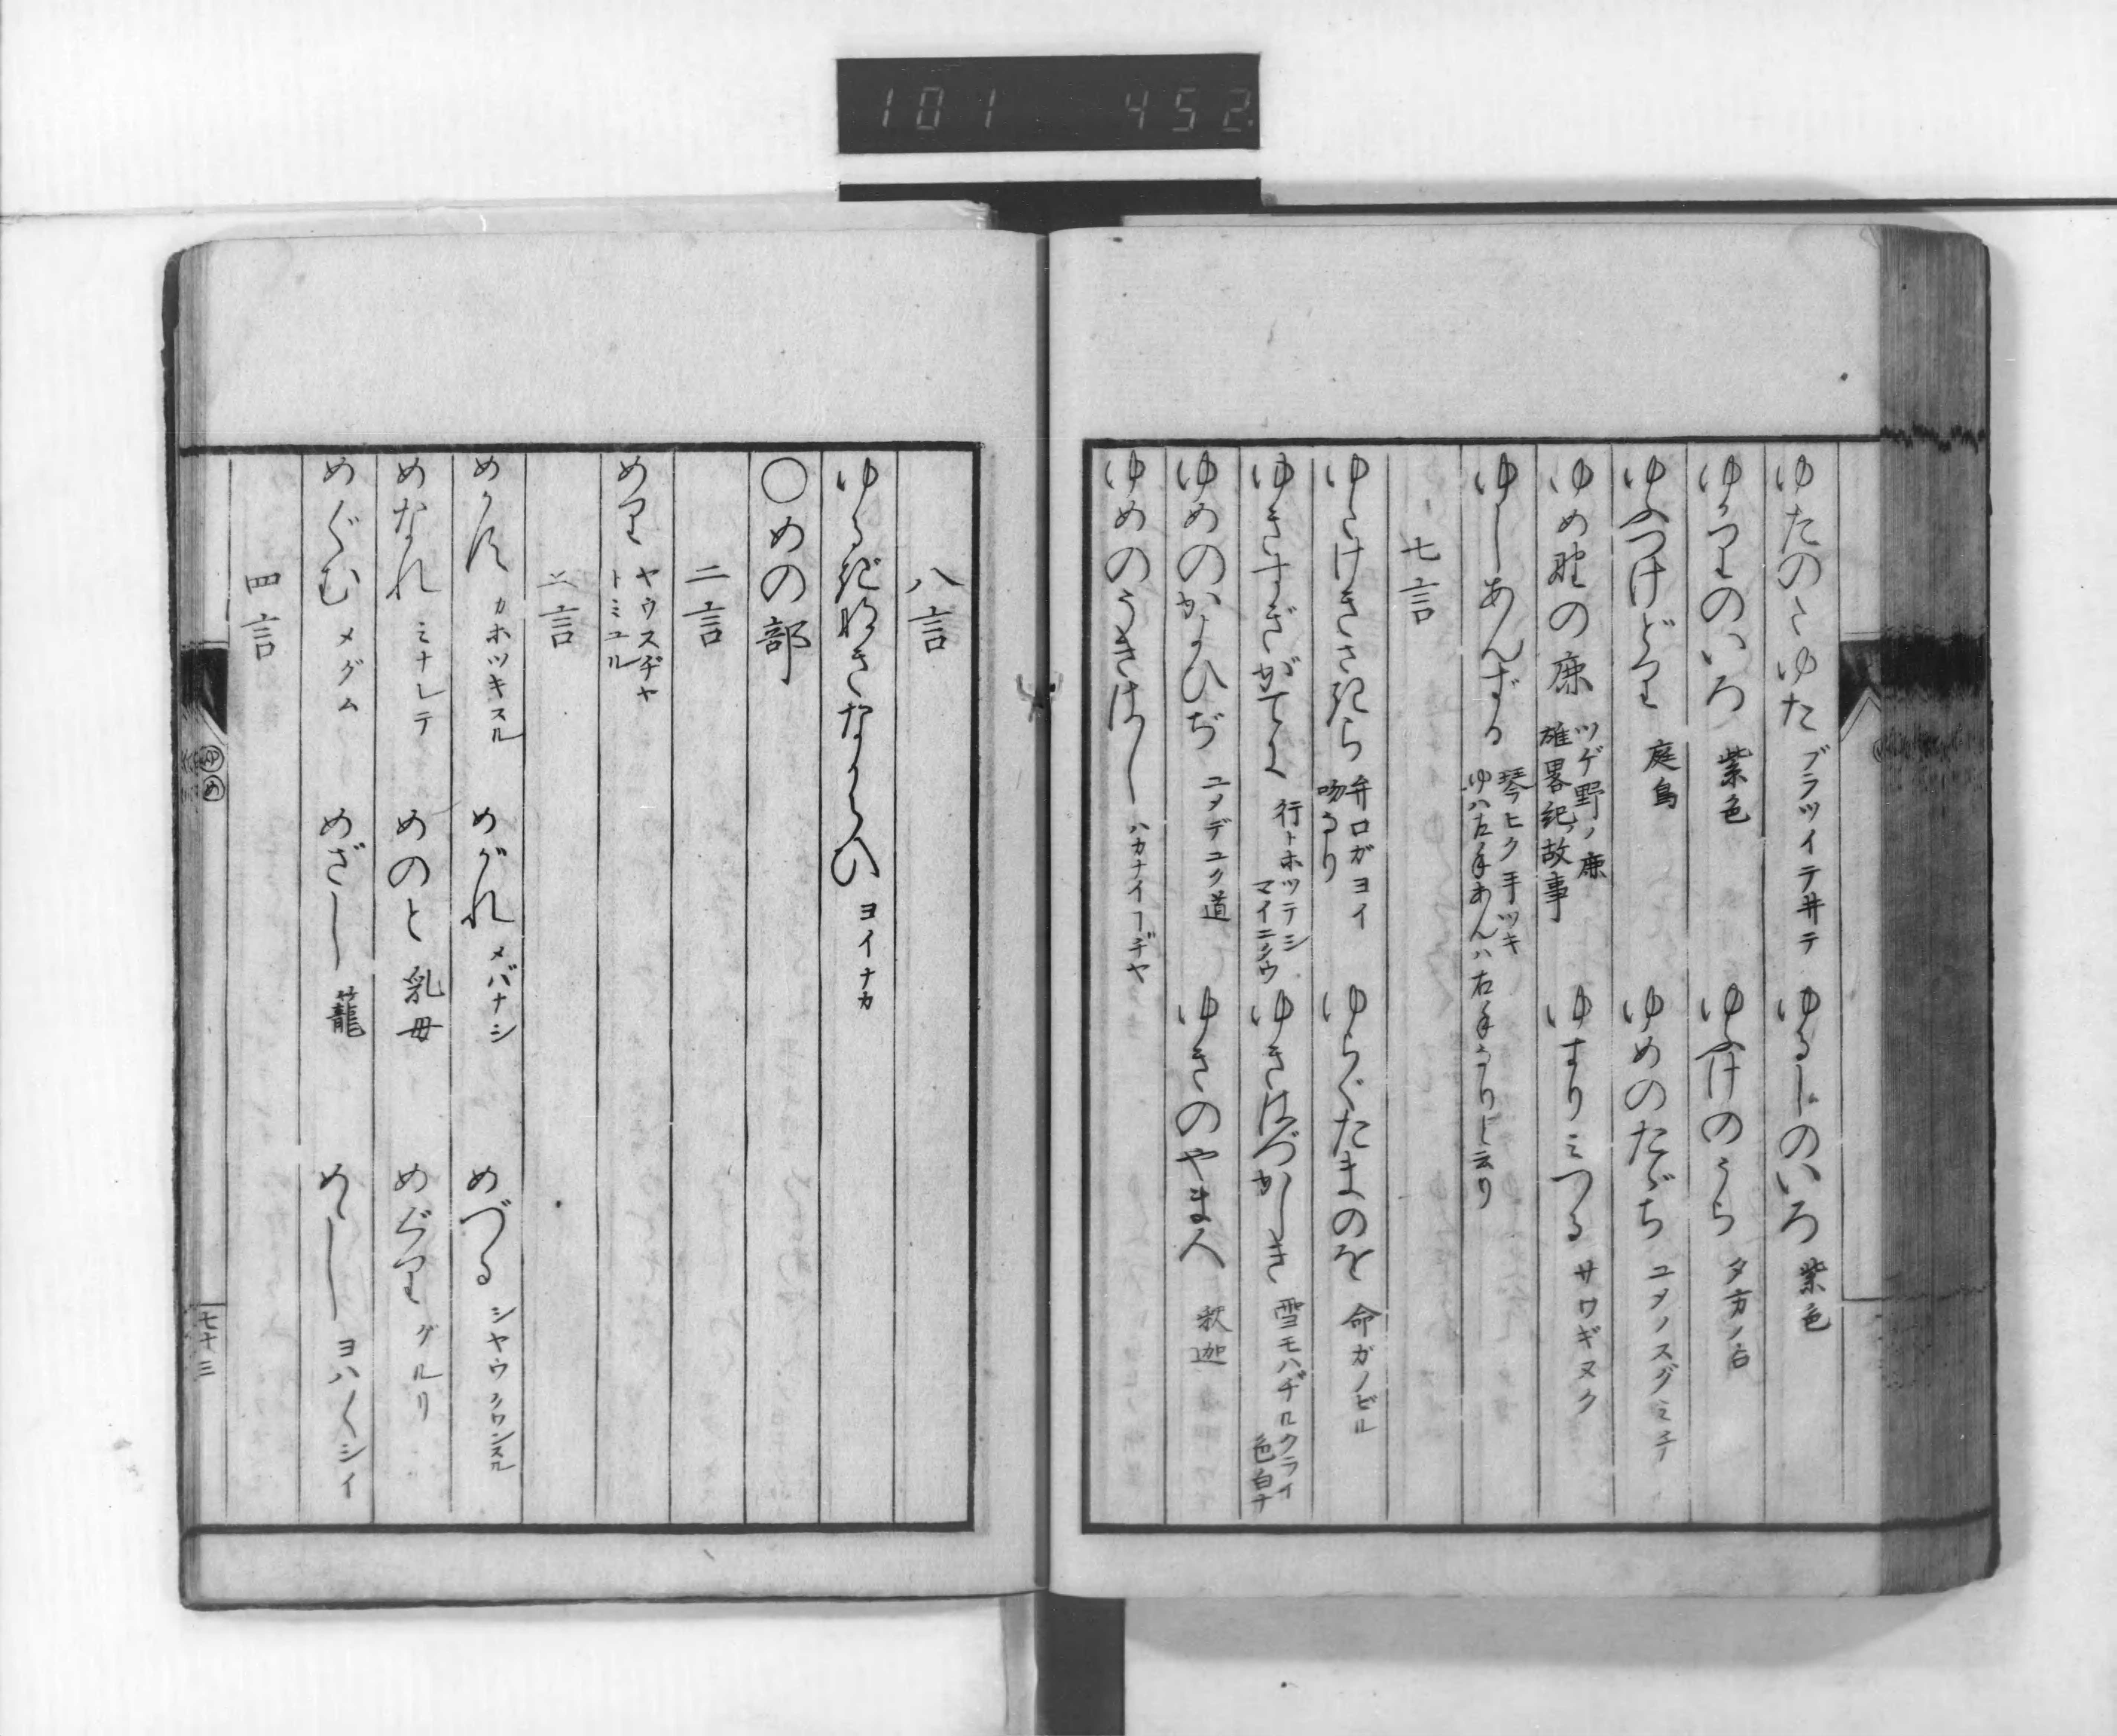 101 452
ゆたのたゆた ブラツイテ井テ ゆるしのいろ 紫色
ゆかりのいろ 紫色 ゆふけのうら 夕方ノ占
ゆふつけどり 庭鳥 ゆめのたゞち ユメノスグミチ
ゆめ野の鹿 ツゲ野ノ鹿 雄畧紀ノ故事 ゆすりみつる サワギヌク
ゆしあんずる 琴ヒク手ツキ ゆハ左手あんハ右手なりと云り
七言
ゆたけきさきら 弁口ガヨイ 吻なり ゆらぐたまのを 命ガノビル
ゆきすぎがてに 行トホツテシマイニクウ ゆきはづかしき 雪モハヂルクライ 色白ナ
ゆめのかよひぢ ユメデユク道 ゆきのやま人 釈迦
ゆめのうきはし ハカナイヿヂヤ
八言
ゆるぎなきなからひ ヨイナカ
〇めの部
二言
めり ヤウスヂヤ トミユル
三言
めかす カホツキスル めがれ メバナシ めづる シヤウクワンスル
めなれ ミナレテ めのと 乳母 めぐり グルリ
めぐむ メグム めざし 籠 めゝし ヨハ〳〵シイ
四言
ゆ め
七十三